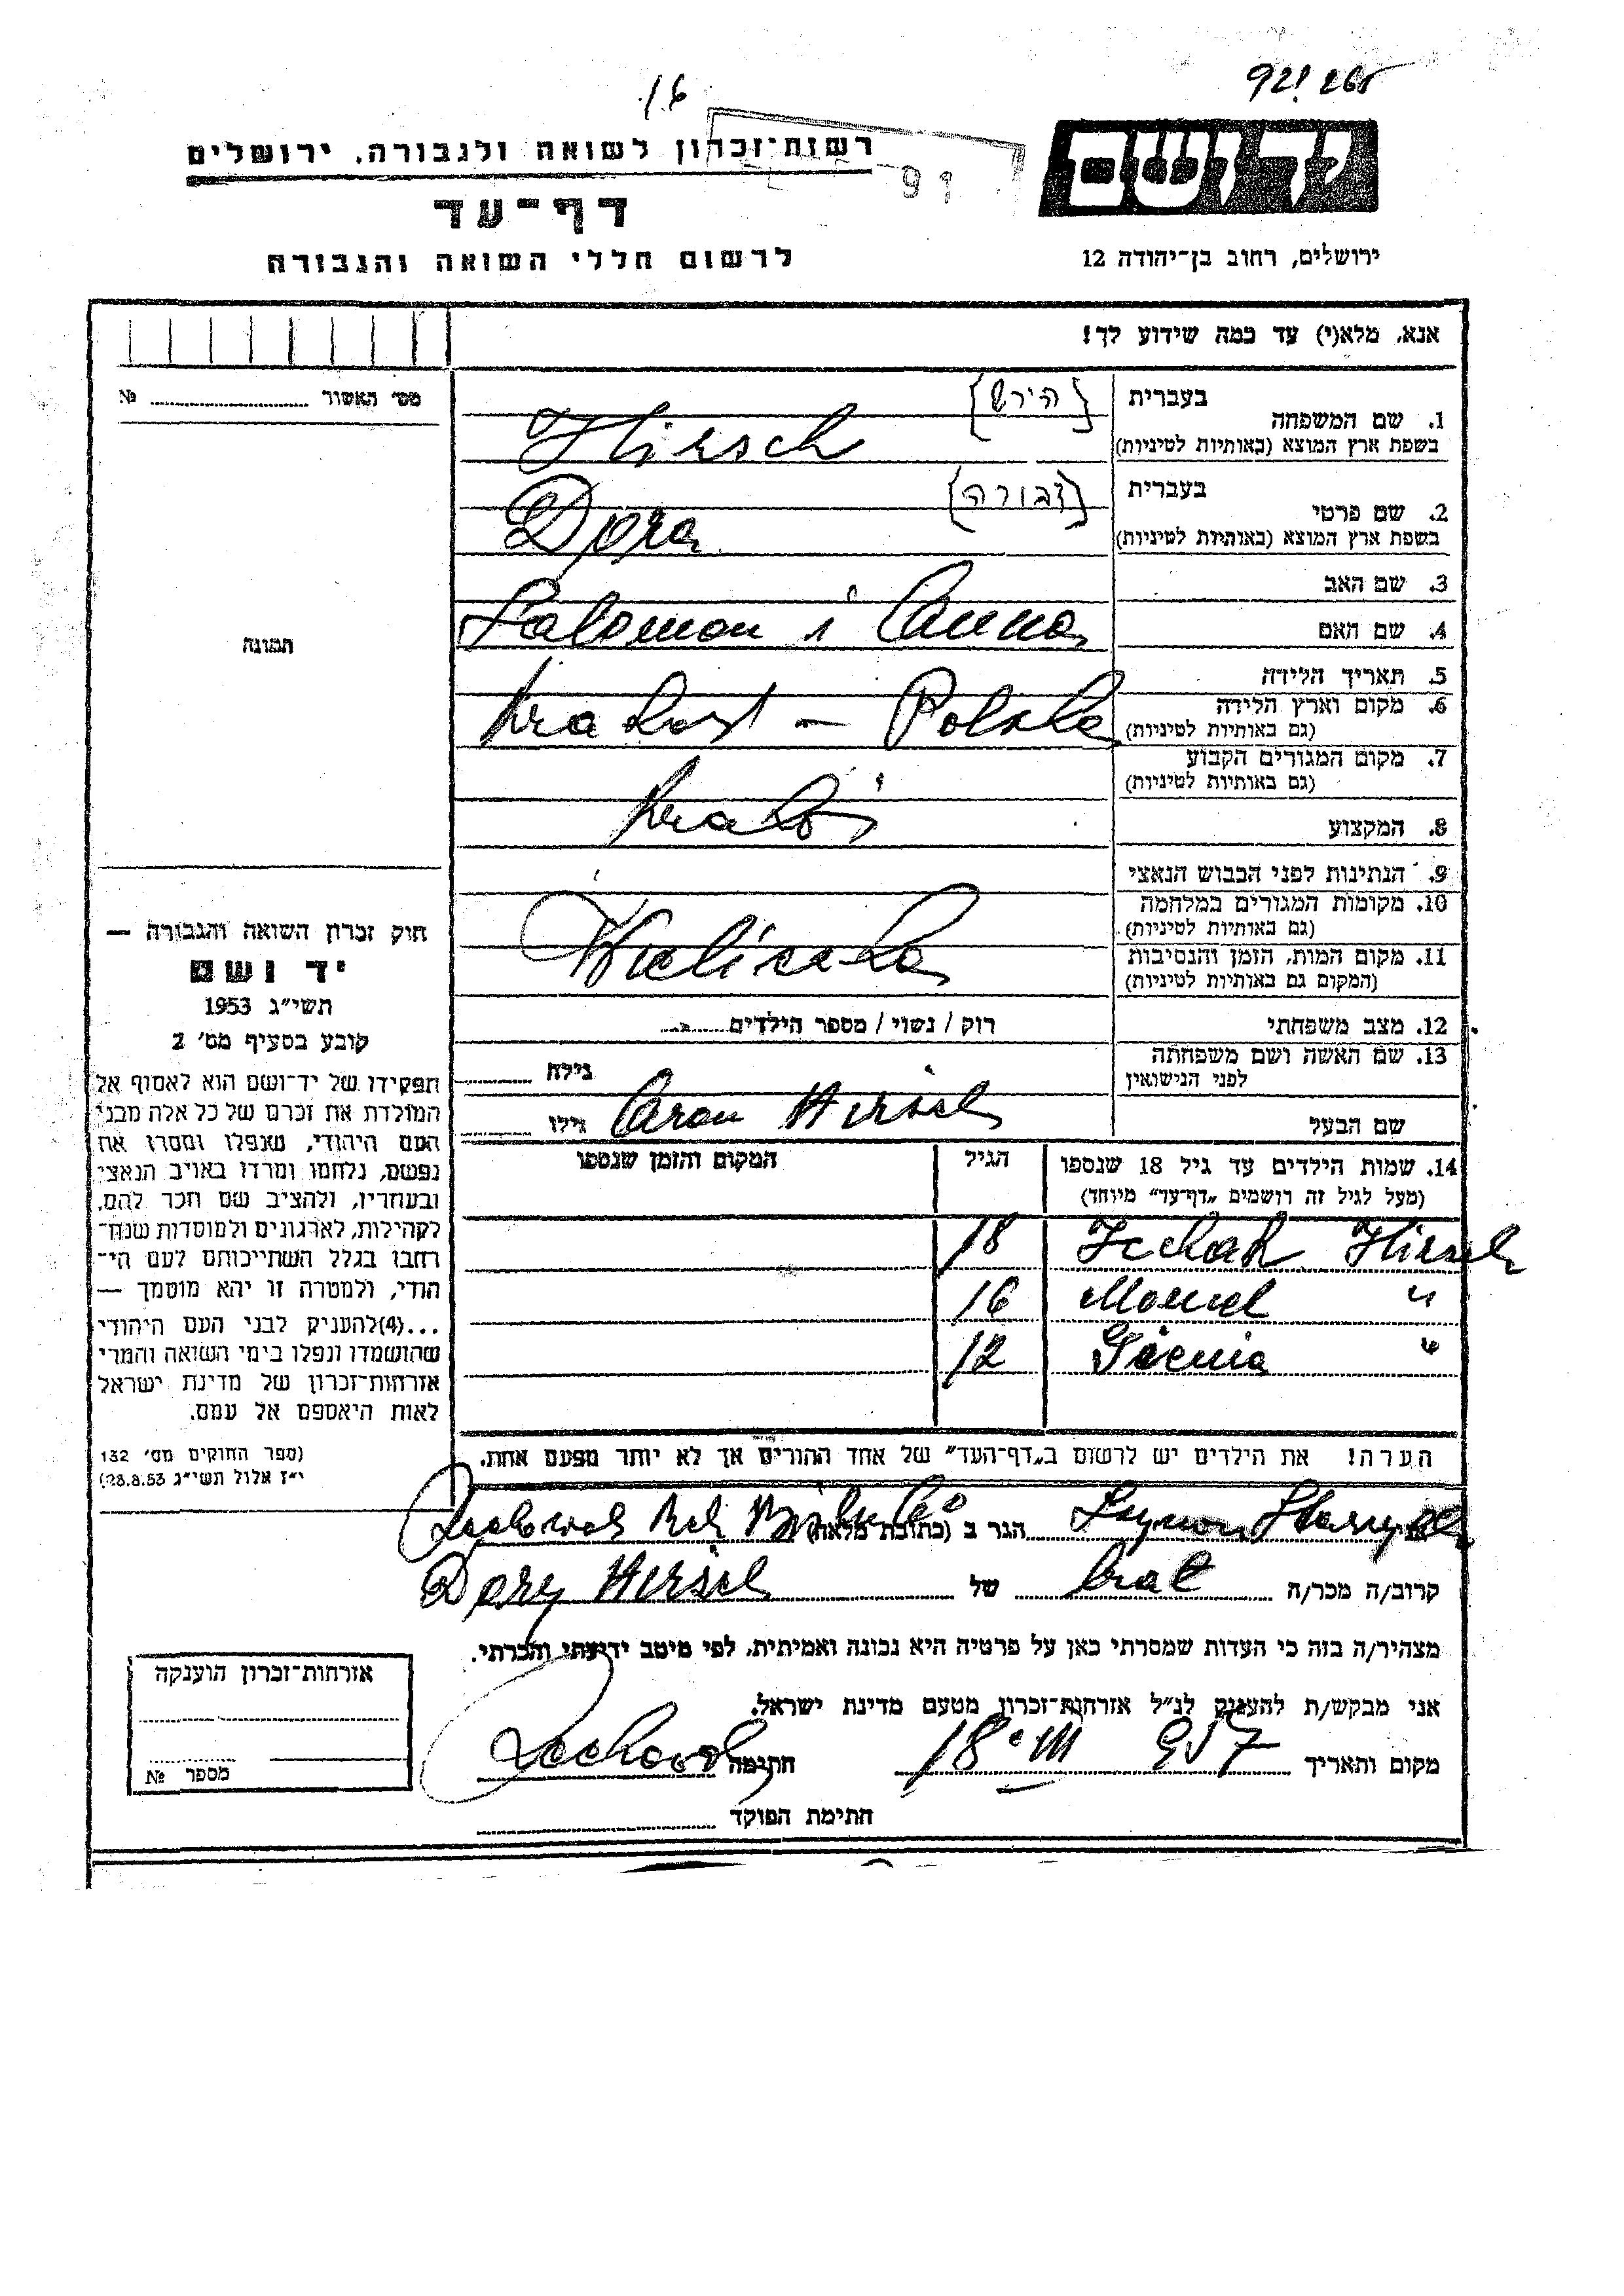 16
רשות־זכרון לשואה ולגבורה, ירושלים
91
יד ושם
דף־עד
לרשום חללי השואה והגבורה
ירושלים, רחוב בן־יהודה 12
אנא, מלא(י) עד כמה שידוע לך!
מס׳ האשור № 
1. שם המשפחה
בעברית [הירש]
בשפת ארץ המוצא (באותיות לטיניות) Hirsch
2. שם פרטי
בעברית [דבורה]
בשפת ארץ המוצא (באותיות לטיניות) Dora
3. שם האב
4. שם האם
Salomon i Anna
5. תאריך הלידה
6. מקום וארץ הלידה
(גם באותיות לטיניות) – Polska
7. מקום המגורים הקבוע
(גם באותיות לטיניות)
8. המקצוע
9. הנתינות לפני הכבוש הנאצי
10. מקומות המגורים במלחמה
(גם באותיות לטיניות)
11. מקום המות, הזמן והנסיבות
(המקום גם באותיות לטיניות) Wieliczka
12. מצב משפחתי רוק / נשוי / מספר הילדים
13. שם האשה ושם משפחתה
לפני הנישואין גילה
שם הבעל Aron Hirsch גילו
14. שמות הילדים עד גיל 18 שנספו הגיל המקום והזמן שנספו
(מעל לגיל זה רושמים „דף־עד״ מיוחד)
Icchak Hirsch 18
16 "
12 "
הערה! את הילדים יש לרשום ב„דף־העד״ של אחד ההורים אך לא יותר מפעם אחת.
הגר ב (כתובת מלאה)
קרוב/ה מכר/ה brat של Dory Hirsch
מצהיר/ה בזה כי העדות שמסרתי כאן על פרטיה היא נכונה ואמיתית, לפי מיטב ידיעתי והכרתי.
אני מבקש/ת להעניק לנ״ל אזרחות־זכרון מטעם מדינת ישראל.
מקום ותאריך 18.III 957 חתימה
חתימת הפוקד
תמונה
חוק זכרון השואה והגבורה —
יד ושם
תשי״ג 1953
קובע בסעיף מס׳ 2
תפקידו של יד־ושם הוא לאסוף אל
המולדת את זכרם של כל אלה מבני
העם היהודי, שנפלו ומסרו את
נפשם, נלחמו ומרדו באויב הנאצי
ובעוזריו, ולהציב שם וזכר להם,
לקהילות, לארגונים ולמוסדות שנח־
רבו בגלל השתייכותם לעם הי־
הודי, ולמטרה זו יהא מוסמך —
...(4)להעניק לבני העם היהודי
שהושמדו ונפלו בימי השואה והמרי
אזרחות־זכרון של מדינת ישראל
לאות היאספם אל עמם.
(ספר החוקים מס׳ 132
י״ז אלול תשי״ג 28.8.53)
אזרחות־זכרון הוענקה
מספר №